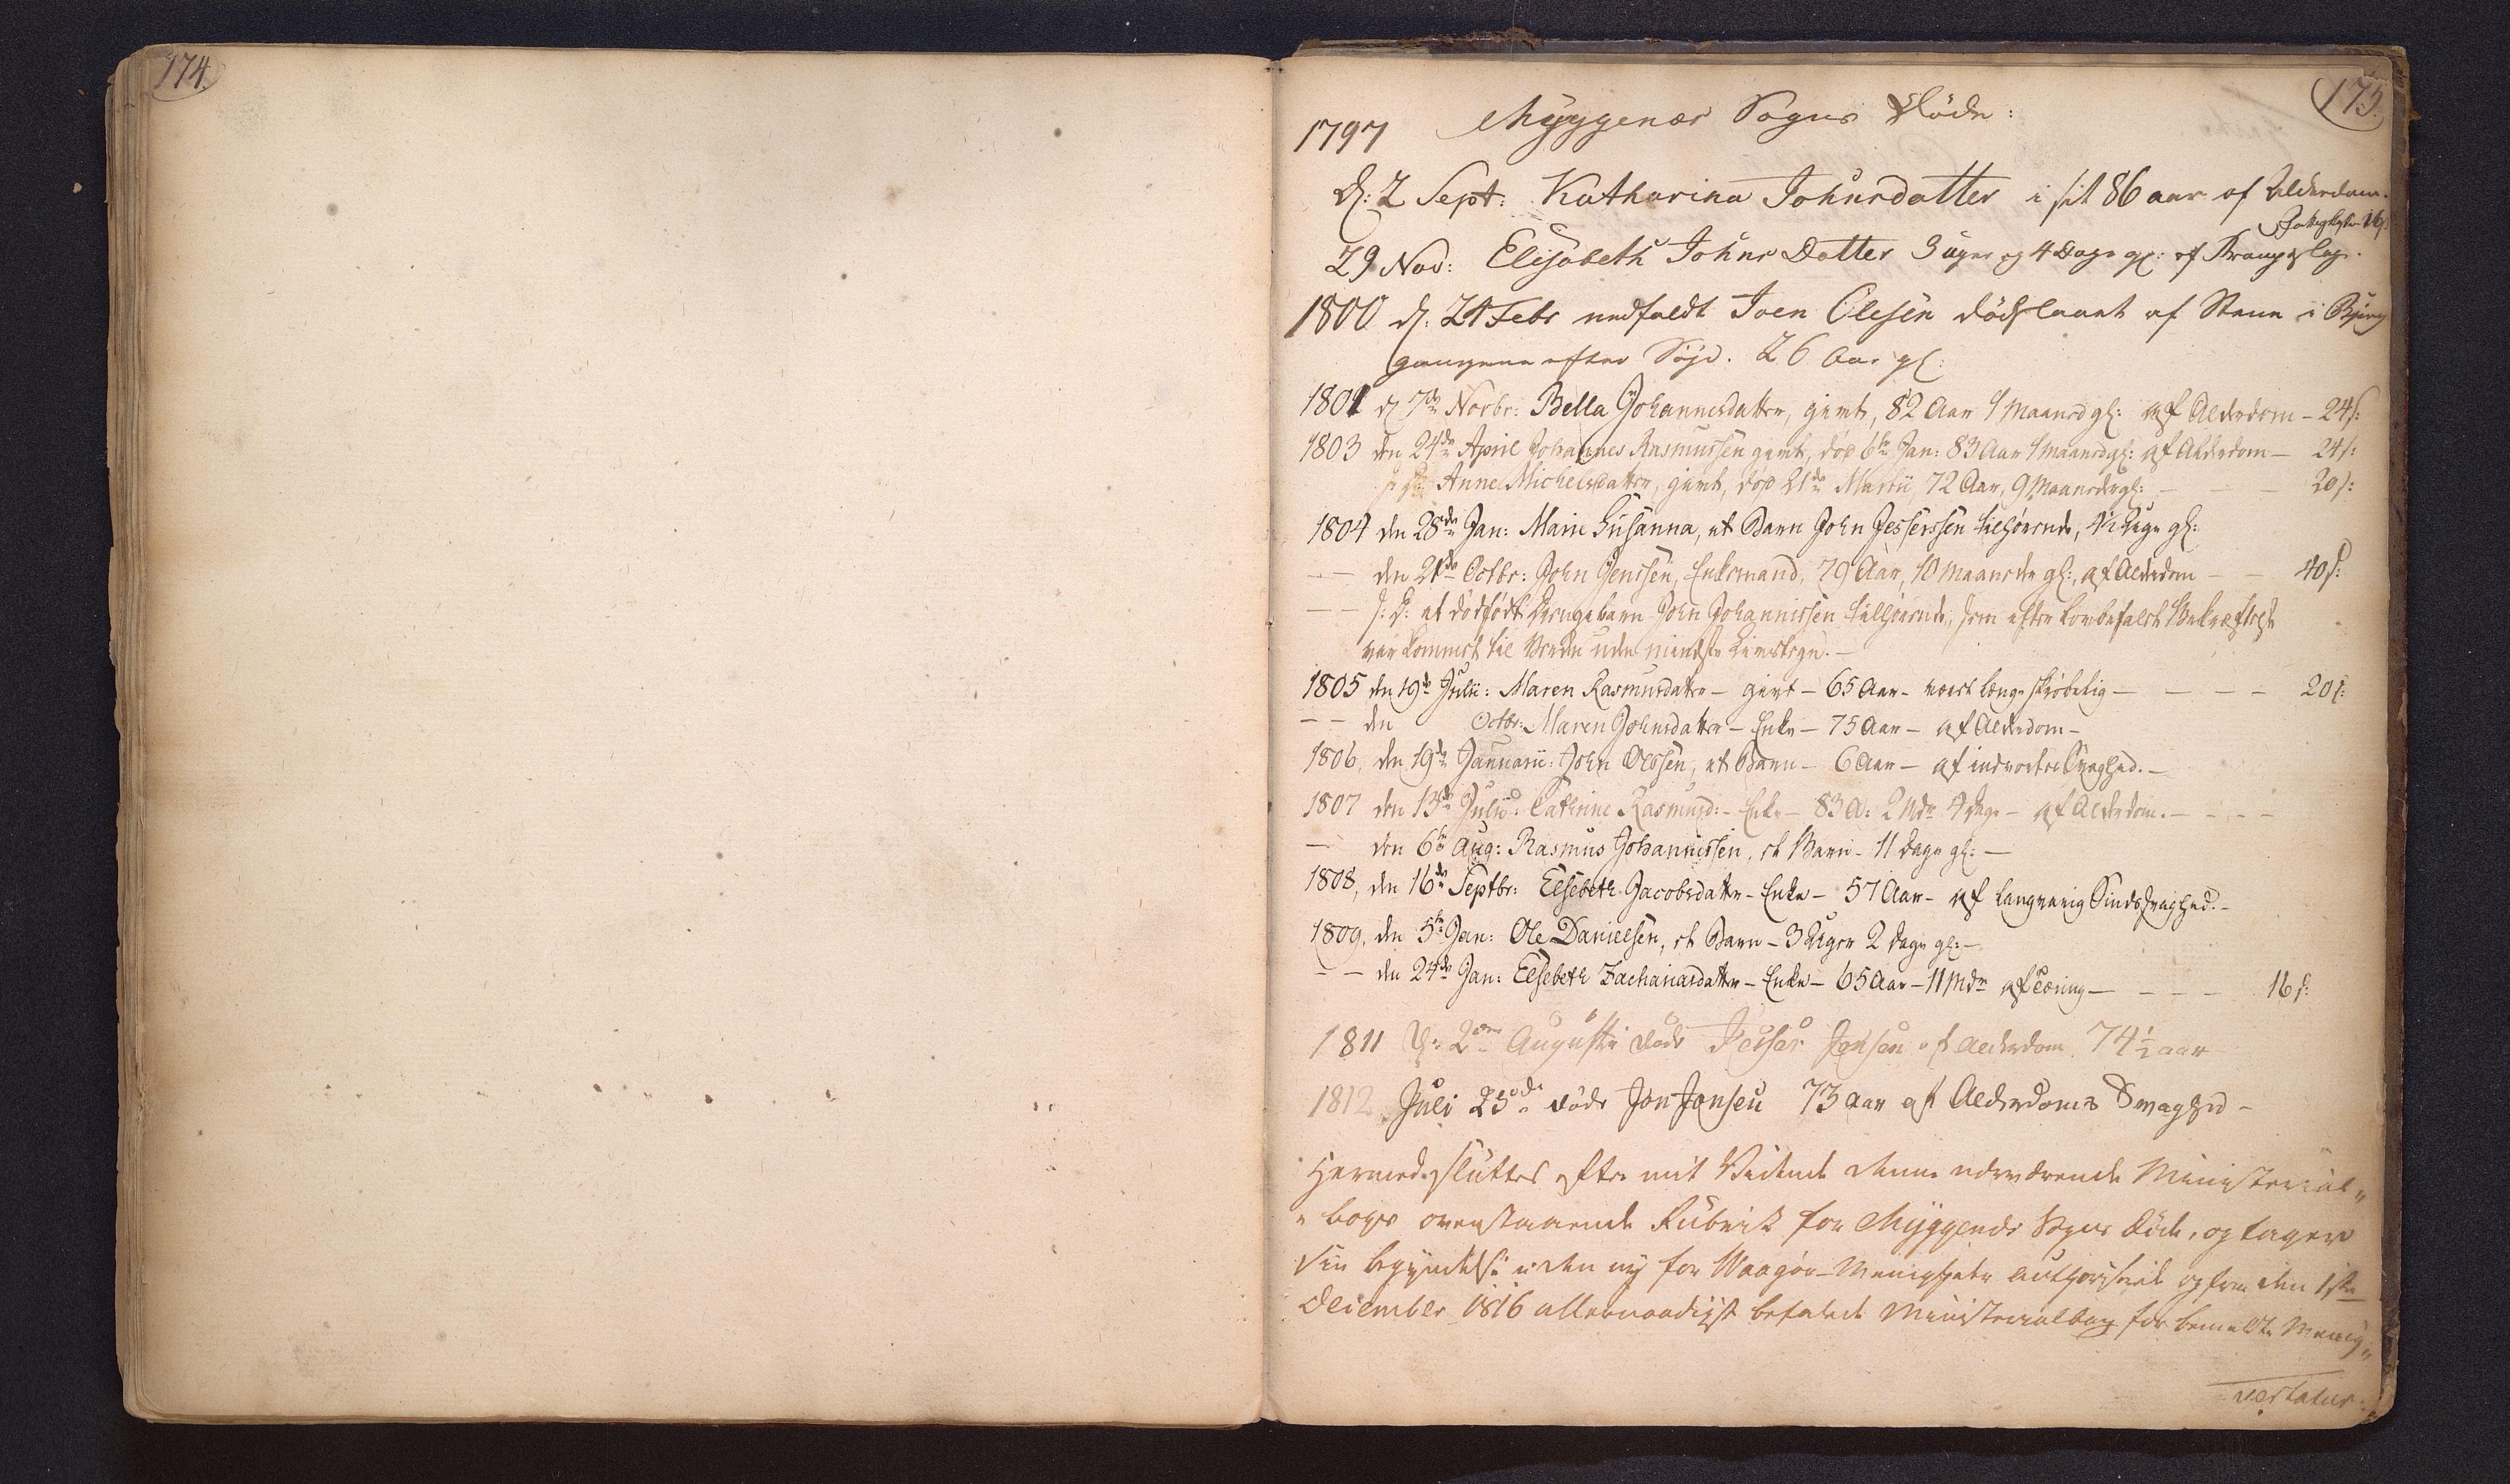 174.
175.
1797 Myggenæs Sogns Døde:
D: 2 Sept: Katharina Johnsdatter i sit 86 aar af Alderdom.
16 s.
29 Nov: Elisabeth Johns Datter 3 uger og 4 Dage gl: af Krampeslag.
1800 d: 24 Febr nedfaldt Joen Olesen dødslaaet af Steen i Bjerg
gangene efter Søjd. 26 Aar gl:
1801 d 7de Novbr: Bella Johannesdatter, givt, 82 Aar 1 Maaned gl: af Alderdom – 24 s:
1803 den 24de April Johannes Rasmussen givt, død 6te Jan: 83 Aar 1 Maaned gl: af Alderdom – 24 s:
s: D: Anne Michelsdatter, givt, død 21de Martii, 72 Aar, 9 Maaneder gl: – – – 20 s:
1804 den 28de Jan: Marie Susanna, et Barn John Jesperssen tilhørende, 4½ Uge gl:
– – den 21de Octbr: John Jenssen, Enkemand, 79 Aar, 10 Maaneder gl:, af Alderdom – – 40 s:
– – s: D: et dødfødt Drengebarn John Johannessen tilhørende, som efter lovbefalet Bekræftelse
var kommet til Verden uden mindste Livstegn. –
1805 den 19de Julii: Maren Rasmusdatter – givt – 65 Aar – været længe skrøbelig – – – – 20 s:
– – den Octbr: Maren Johnsdatter – Enke – 75 Aar – af Alderdom –
1806, den 19de Januarii: John Olssen, et Barn – 6 Aar – af indvortes Svaghed. –
1807 den 13de Julii: Cathrine Rasmusd: – Enke – 83 A: 2 Mdr 4 Dage – af Alderdom. – – – –
– den 6te Aug: Rasmus Johannessen, et Barn – 11 Dage gl: –
1808, den 16de Septbr: Elsebeth Jacobsdatter – Enke – 57 Aar – af langvarig Sindssvaghed. –
1809, den 5te Jan: Ole Danielsen, et Barn – 3 Uger 2 Dage gl: –
– – den 24de Jan: Elsebeth Zachariasdatter – Enke – 65 Aar – 11 Mdr af Tæring – – – – 16 s:
1811 D: 2den Augusti døde Jesper Jensen af Alderdom 74½ aar
1812 Juli 25de døde Jon Jonsen 73 aar af Alderdoms Svaghed –
Hermed sluttes efter mit Vidende denne nærværende Ministerial„
„ bogs ovenstaaende Rubrik for Myggenæs Sogns Døde, og tager
sin begyndelse i den ny for Waagøe Menigheder authoriserede og fra den 1ste
December 1816 allernaadigst befalede Ministerialbog for bemeldte Menig„
vertatur.